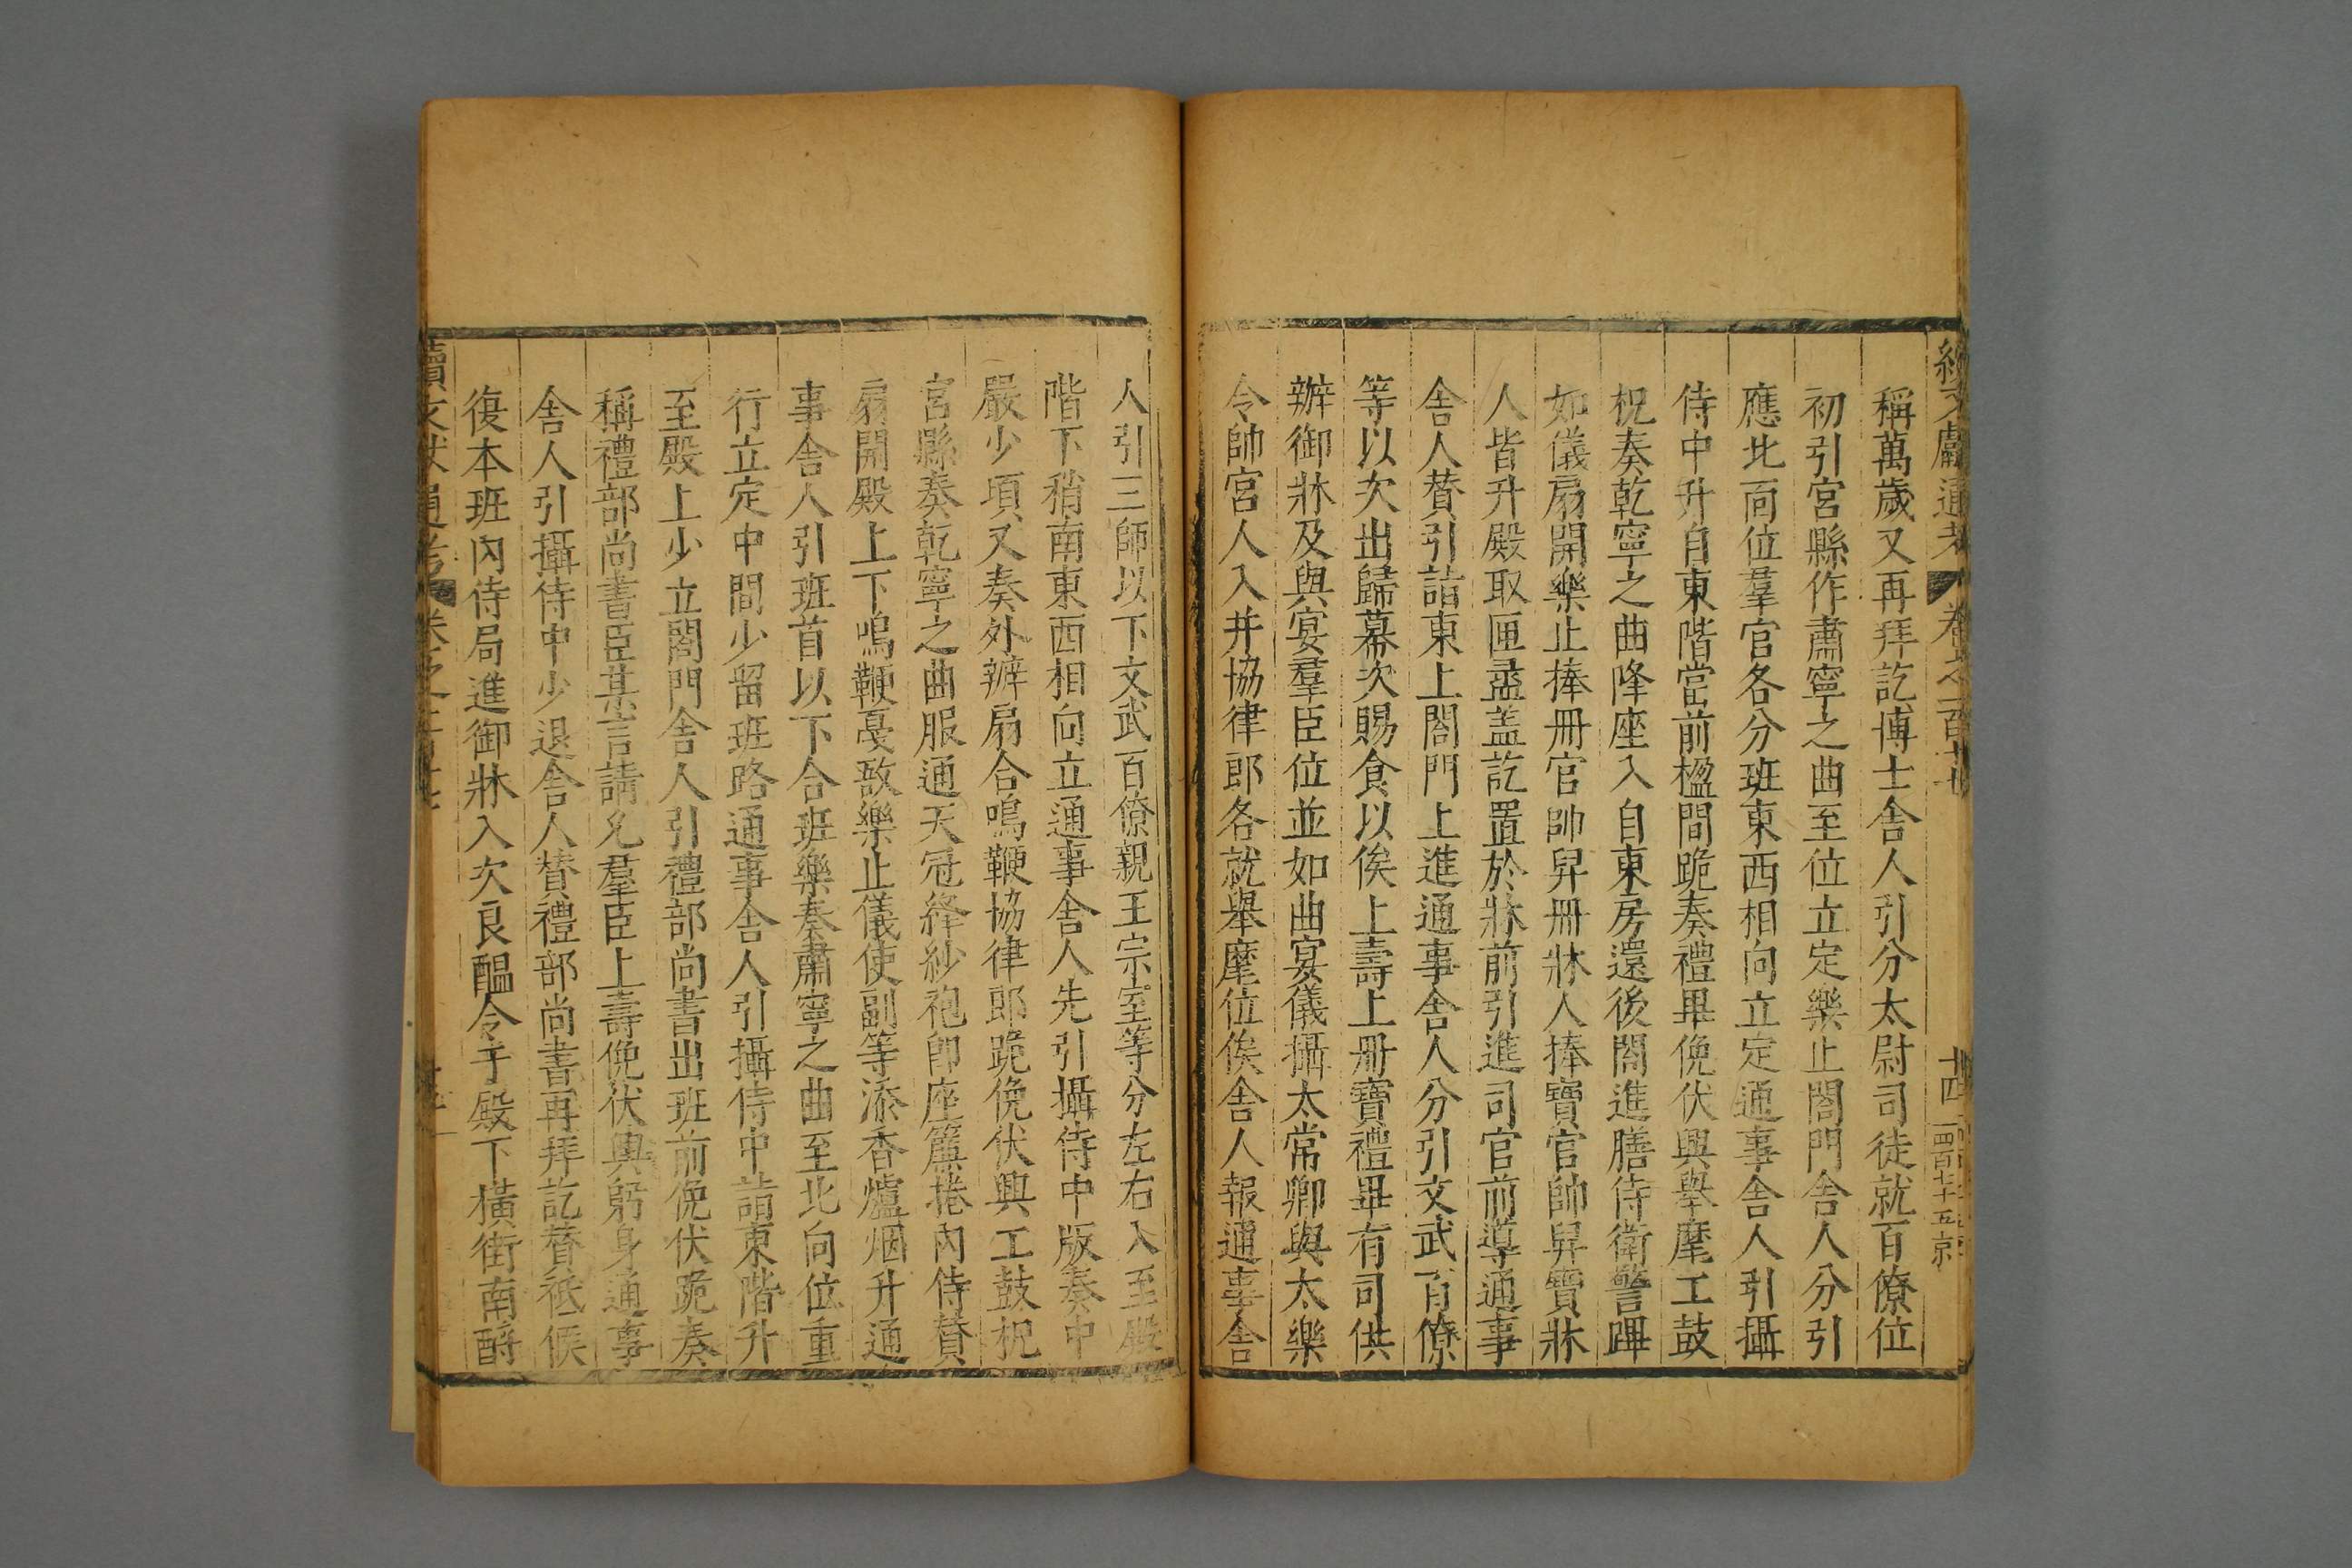 稱萬歲又再拜訖博士舍人引分太尉司徒就百僚位
初引宮縣作肅寧之曲至位立定樂止閤門舍人分引
應北面位羣官各分班東西相向立定通事舍人引攝
侍中升自東階當前楹間跪奏禮畢俛伏興舉麾工鼓
柷奏乾寧之曲降座入自東房還後閤進膳侍衛警蹕
如儀扇開樂止捧冊官帥舁冊牀人捧寶官帥舁寶牀
人皆升殿取匣盝盖訖置於牀前引進司官前導通事
舍人贊引詣東上閤門上進通事舍人分引文武百僚
等以次出歸幕次賜食以俟上壽上冊寶禮畢有司供
辦御牀及與宴羣臣位並如曲宴儀攝太常卿與太樂
令帥宮人入并協律郎各就舉麾位俟舍人報通事舍
人引三師以下文武百僚親王宗室等分左右入至殿
階下稍南東西相向立通事舍人先引攝侍中版奏中
嚴少頃又奏外辦扇合鳴鞭協律郎跪俛伏興工鼓柷
宮縣奏乾寧之曲服通天冠絳紗袍卽座簾捲內侍贊
扇開殿上下鳴鞭戛敔樂止儀使副等添香爐烟升通
事舍人引班首以下合班樂奏肅寧之曲至北向位重
行立定中間少留班路通事舍人引攝侍中詣東階升
至殿上少立閤門舍人引禮部尚書出班前俛伏跪奏
稱禮部尚書臣某言請允羣臣上壽俛伏興躬身通事
舍人引攝侍中少退舍人贊禮部尚書再拜訖贊祗候
復本班內侍局進御牀入次良醞令于殿下橫街南酹